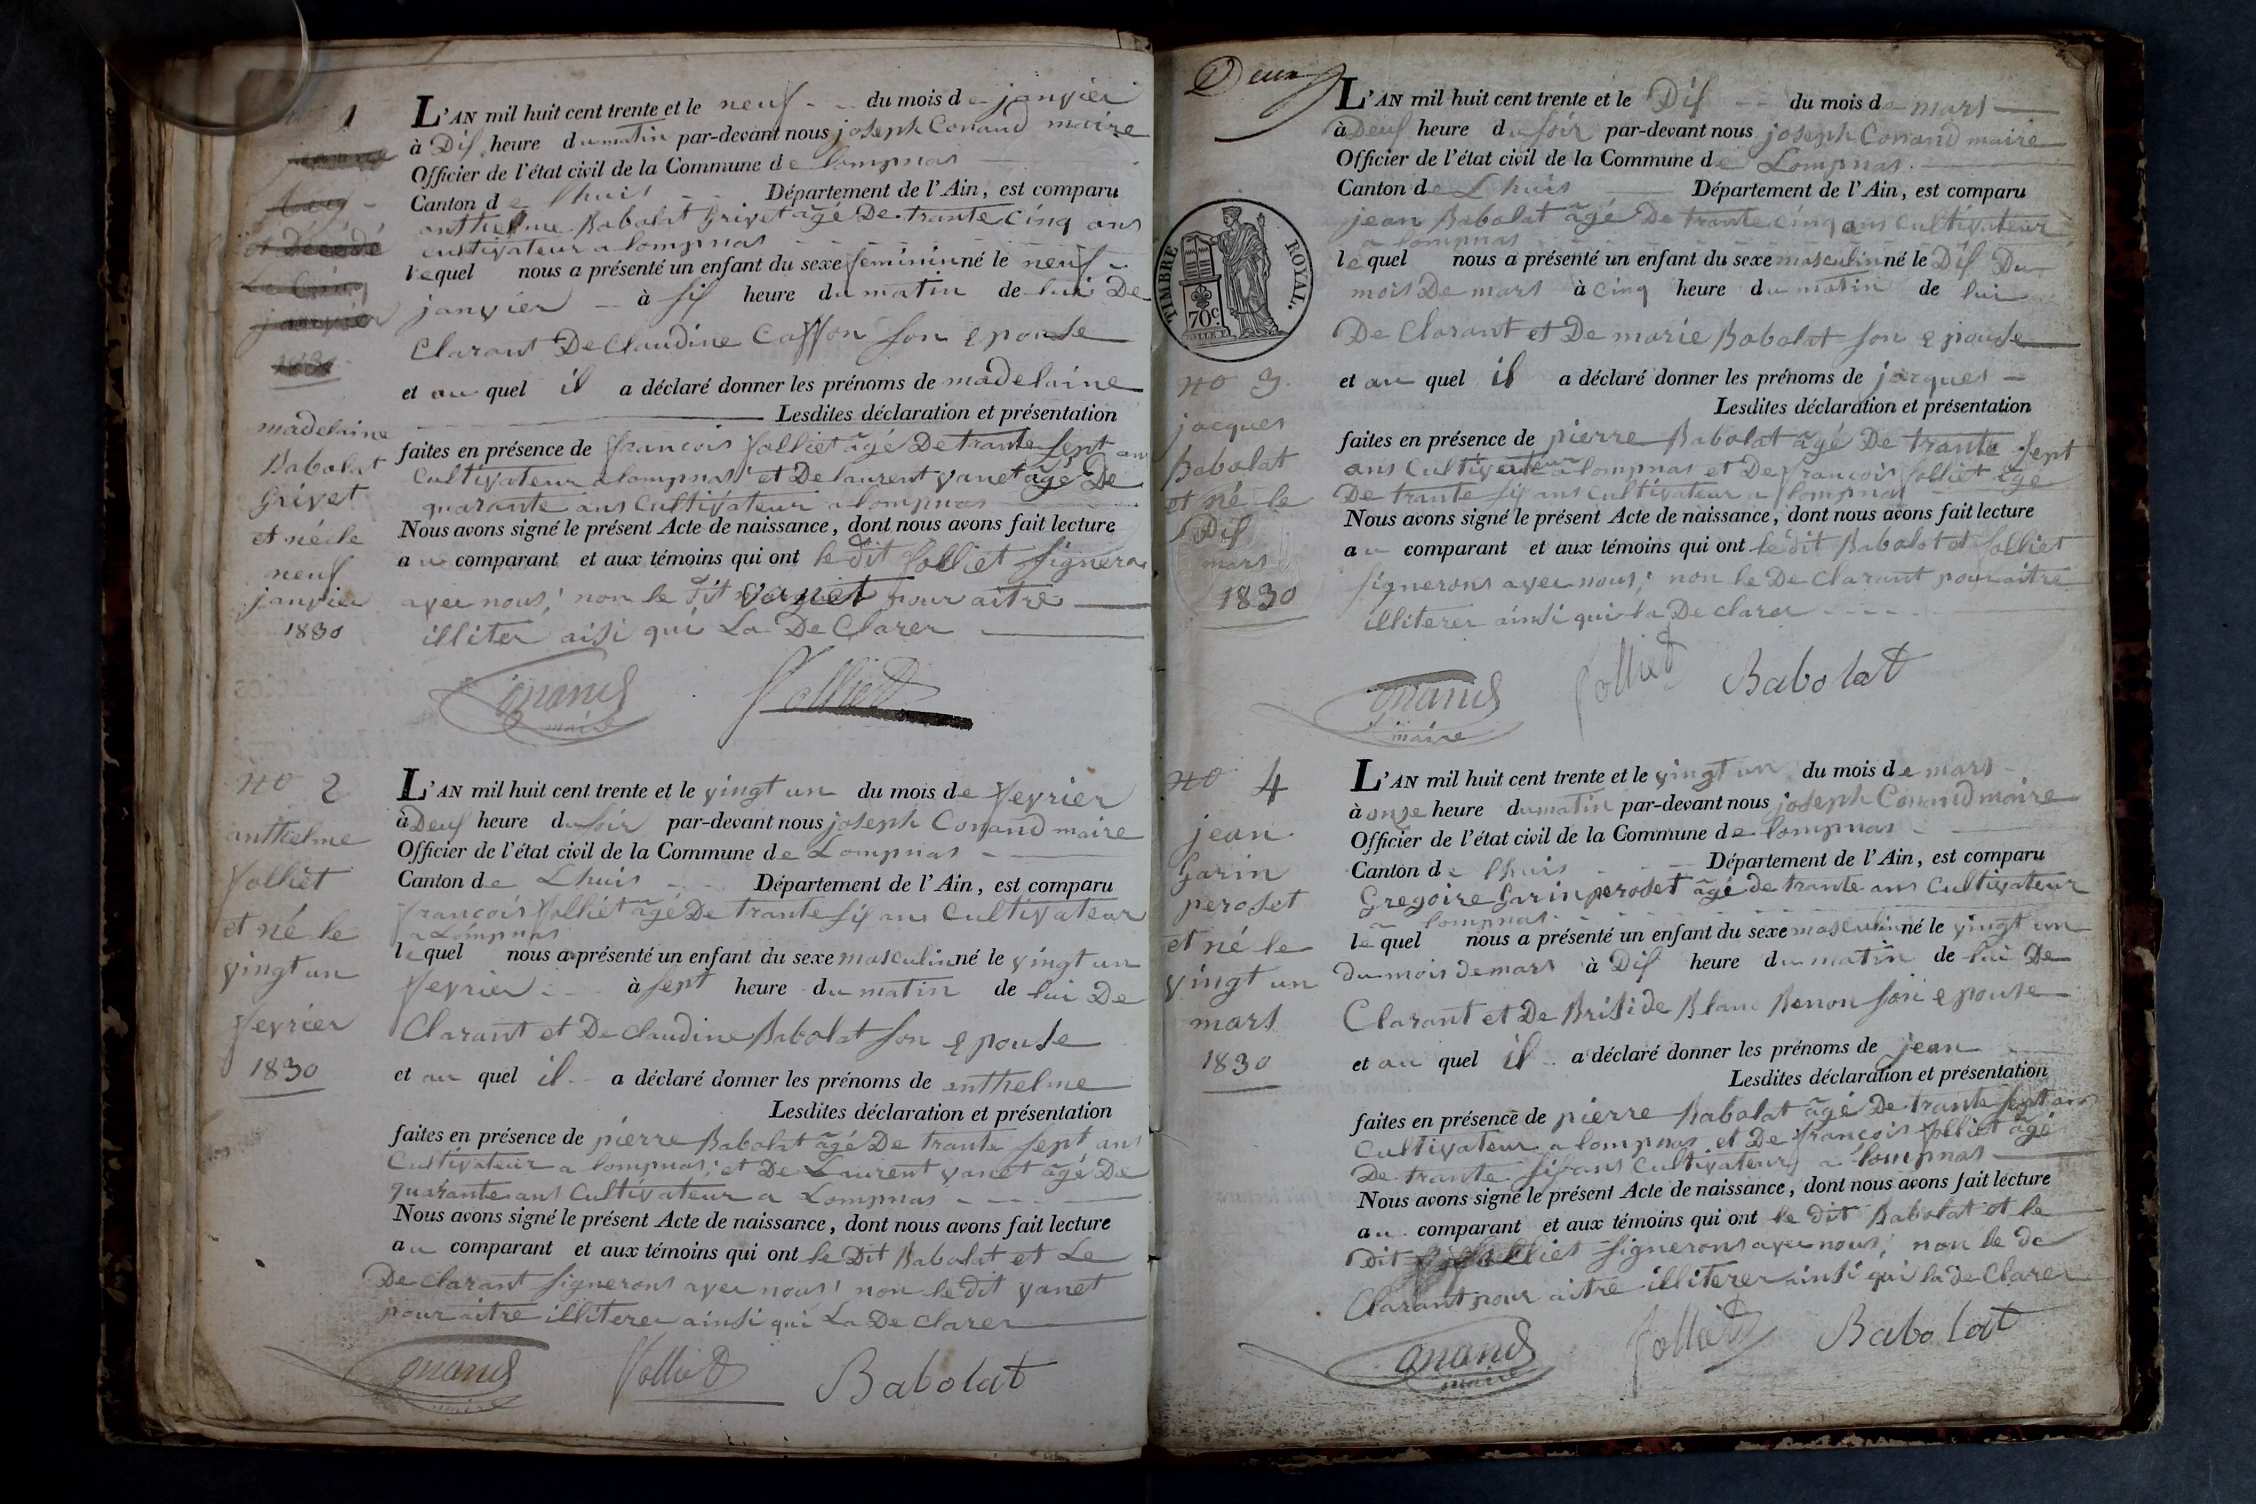 1
L'AN mil huit cent trente et le neuf du mois de janvier
à Dis heure du matin par-devant nous joseph Conand maire
Officier de l'état civil de la Commune de lompnas
Canton de lhuis Département de l'Ain, est comparu
anthelme Babolat Grivet âgé De trante cinq ans
cultivateur a lompnas
lequel nous a présenté un enfant du sexe feminin né le neuf
janvier à sis heure du matin de lui De
Clarant De Claudine son epouse
et au quel il a déclaré donner les prénoms de madelaine
Lesdites déclaration et présentation
faites en présence de françois folliet âgé De trante sept ans
Cultivateur a lompnas et De laurent vanet âgé De
quarante ans Cultivateur a lompnas
Nous avons signé le présent Acte de naissance, dont nous avons fait lecture
au comparant et aux témoins qui ont le dit folliet signeron
avec nous; non le dit pour aitre
illiter aisi qui La De Clarer
et Décédé
Le Cinq
janvier
1830
madelaine
Babolat
Grivet
et née le
neuf
janvier
1830
Conand
maire
folliet
no 2
anthelme
folliet
et né le
vingt un
fevrier
1830
L'AN mil huit cent trente et le vingt un du mois de fevrier
à Deus heure du soir par-devant nous joseph Conand maire
Officier de l'état civil de la Commune de Lompnas
Canton de Lhuis Département de l'Ain, est comparu
françois folliet âgé De trante sis ans Cultivateur
a Lompnas
lequel nous a présenté un enfant du sexe masculin né le vingt un
fevrier à sept heure du matin de lui De
Clarant et De Claudine Babolat son epouse
et au quel il a déclaré donner les prénoms de anthelme
Lesdites déclaration et présentation
faites en présence de pierre Babolat âgé De trante sept ans
Cultivateur a lompnas; et De Laurent vanet âgé De
quarante ans Cultivateur a Lompnas
Nous avons signé le présent Acte de naissance, dont nous avons fait lecture
au comparant et aux témoins qui ont le Dit Babolat et Le
De Clarant signerons avec nous; non le dit vanet
pour aitre illiterer ainsi qui La De Clarer
Conand
maire
folliet
Babolat
Deux
TIMBRE ROYAL.
70c.
no 3
jacques
Babolat
et né le
Dis
mars
1830
L'AN mil huit cent trente et le Dis du mois de mars
à Deus heure du soir par-devant nous joseph Conand maire
Officier de l'état civil de la Commune de Lompnas
Canton de Lhuis Département de l'Ain, est comparu
jean Babolat âgé De trante cinq ans Cultivateur
a lompnas
lequel nous a présenté un enfant du sexe masculin né le Dis Du
mois De mars à cinq heure du matin de lui
De Clarant et De marie Babolat son epouse
et au quel il a déclaré donner les prénoms de jacques
Lesdites déclaration et présentation
faites en présence de pierre Babolat âgé De trante sept
ans Cultivateur a lompnas et De françois folliet âgé
De trante sis ans Cultivateur a lompnas
Nous avons signé le présent Acte de naissance, dont nous avons fait lecture
au comparant et aux témoins qui ont le dit Babolat et folliet
signerons avec nous; non le De Clarant pour aitre
illiterer ainsi qui la De Clarer
Conand
maire
folliet
Babolat
no 4
jean
Garin
peroset
et né le
vingt un
mars
1830
L'AN mil huit cent trente et le vingt un du mois de mars
à onze heure du matin par-devant nous joseph Conand maire
Officier de l'état civil de la Commune de lompnas
Canton de lhuis Département de l'Ain, est comparu
Gregoire Garin peroset âgé de trante ans Cultivateur
a lompnas
lequel nous a présenté un enfant du sexe masculin né le vingt un
du mois de mars à Dis heure du matin de lui De
Clarant et De Briside Blanc Benon son epouse
et au quel il a déclaré donner les prénoms de jean
Lesdites déclaration et présentation
faites en présence de pierre Babolat âgé De trante sept ans
Cultivateur a lompnas et De françois folliet âgé
De trante sis ans Cultivateur a lompnas
Nous avons signé le présent Acte de naissance, dont nous avons fait lecture
au comparant et aux témoins qui ont le dit Babolat et le
Dit folliet signerons avec nous; non le de
Clarant pour aitre illiterer ainsi qui la de Clarer
Conand
maire
folliet
Babolat